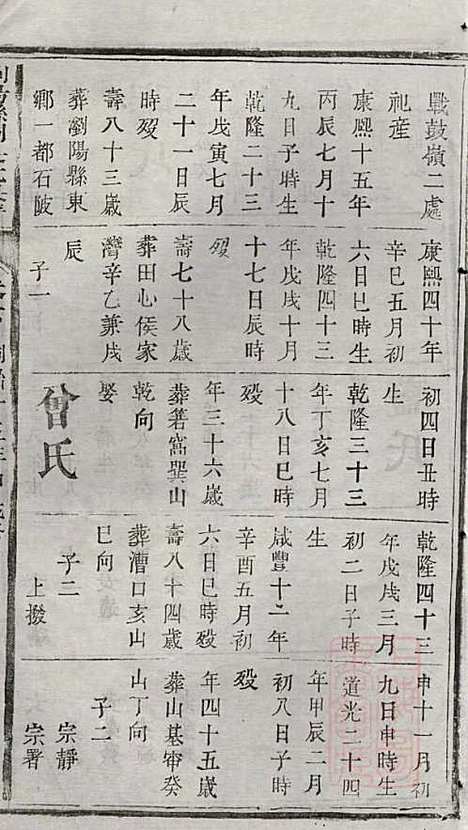 戰鼓嶺二處
祀産
康熙十五年
丙辰七月十
九日子時生
乾隆二十三
年戊寅七月
二十一日辰
時歿
壽八十三歲
葬瀏陽縣東
鄉一都石陂
康熙四十年
辛巳五月初
六日巳時生
乾隆四十三
年戊戌十月
十七日辰時
歿
壽七十八歲
葬田心侯家
灣辛乙兼戌
辰
子一
初四日丑時
生
乾隆三十三
年丁亥七月
十八日巳時
歿
年三十六歲
葬箬窩巽山
乾向
娶
曾氏
乾隆四十三
年戊戌三月
初二日子時
生
咸豐十二年
辛酉五月初
六日巳時歿
壽八十四歲
葬漕口亥山
巳向
子二
上撥
申十一月初
九日申時生
道光二十四
年甲辰二月
初八日子時
歿
年四十五歲
葬山基癸
山丁向
子二
宗靜
宗署